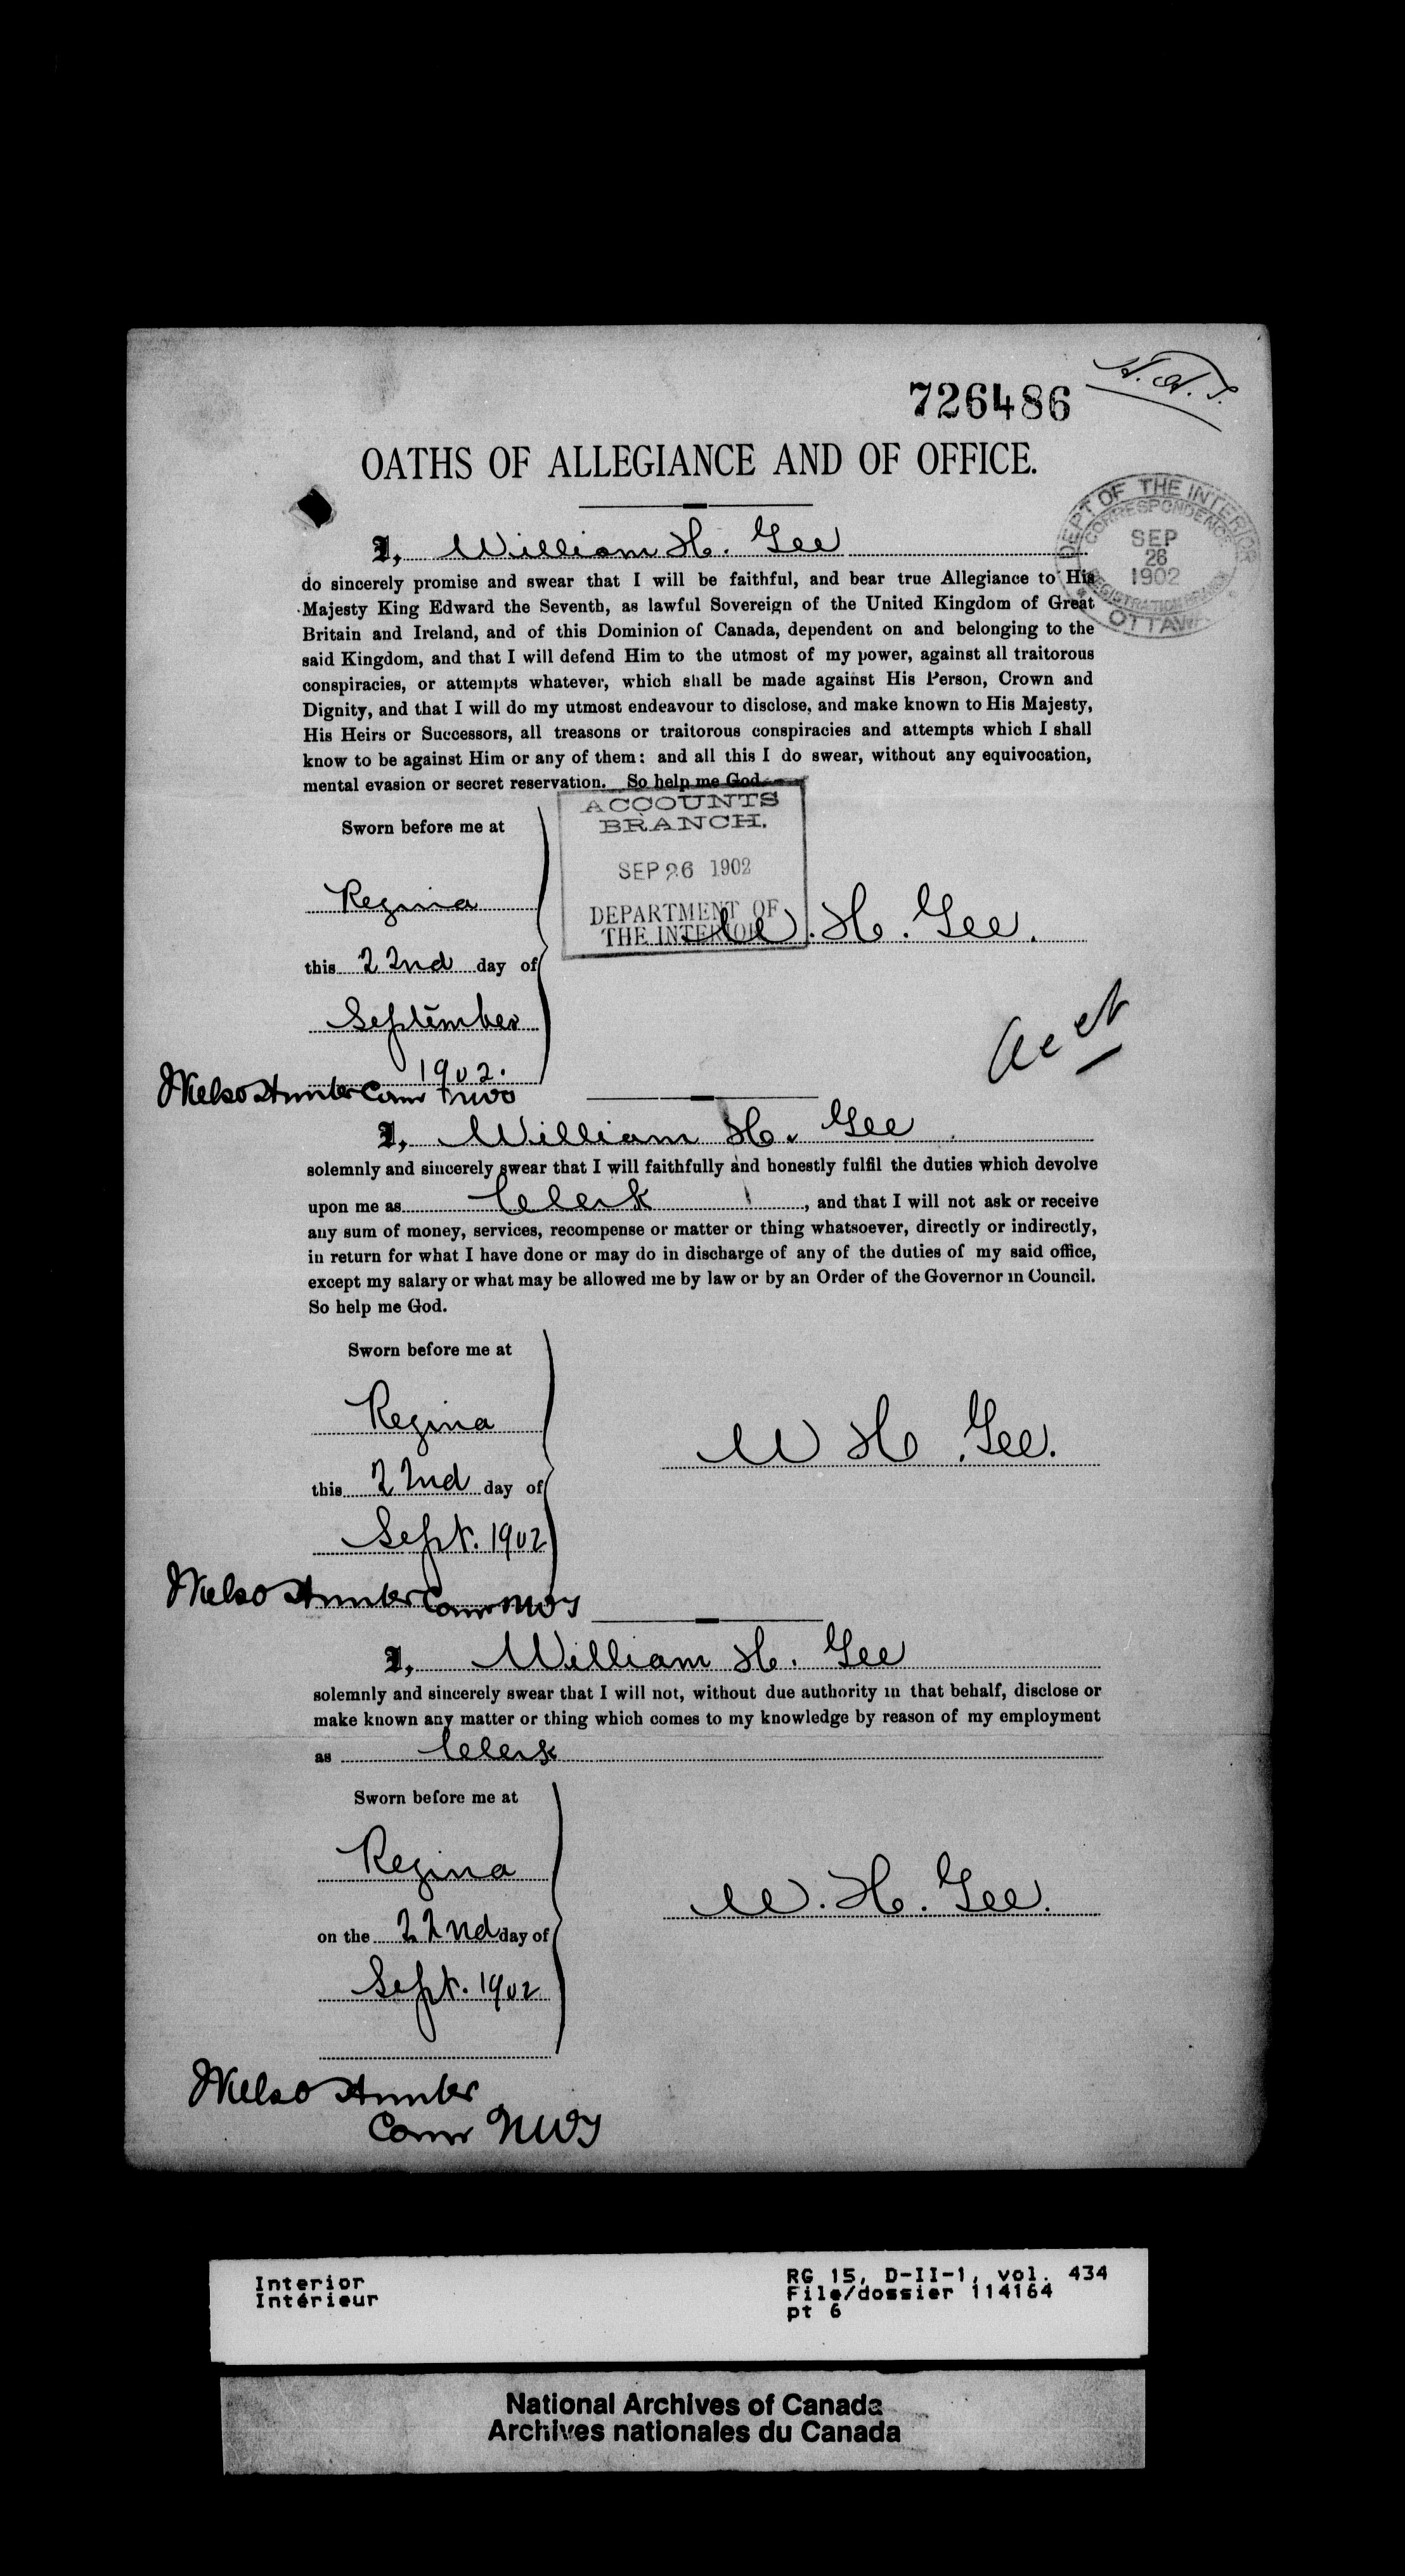 726486
OATHS OF ALLEGIANCE AND OF OFFICE.
DEPT OF THE INTERIOR
CORRESPONDENCE
SEP
26
1902
REGISTRATION BRANCH
OTTAWA
I, William H. Gee
do sincerely promise and swear that I will be faithful, and bear true Allegiance to His
Majesty King Edward the Seventh, as lawful Sovereign of the United Kingdom of Great
Britain and Ireland, and of this Dominion of Canada, dependent on and belonging to the
said Kingdom, and that I will defend Him to the utmost of my power, against all traitorous
conspiracies, or attempts whatever, which shall be made against His Person, Crown and
Dignity, and that I will do my utmost endeavour to disclose, and make known to His Majesty,
His Heirs or Successors, all treasons or traitorous conspiracies and attempts which I shall
know to be against Him or any of them: and all this I do swear, without any equivocation,
mental evasion or secret reservation. So help me God.
ACCOUNTS
BRANCH.
SEP 26 1902
DEPARTMENT OF
THE INTERIOR
Sworn before me at
Regina
W. H. Gee.
this 22nd day of
September
1902.
I, William H. Gee
solemnly and sincerely swear that I will faithfully and honestly fulfil the duties which devolve
upon me as Clerk, and that I will not ask or receive
any sum of money, services, recompense or matter or thing whatsoever, directly or indirectly,
in return for what I have done or may do in discharge of any of the duties of my said office,
except my salary or what may be allowed me by law or by an Order of the Governor in Council.
So help me God.
Sworn before me at
Regina
W H Gee.
this 22nd day of
Sept. 1902
Hunter Comr NWT
I, William H. Gee
solemnly and sincerely swear that I will not, without due authority in that behalf, disclose or
make known any matter or thing which comes to my knowledge by reason of my employment
as Clerk
Sworn before me at
Regina
W. H. Gee.
on the 22nd day of
Sept. 1902
Hunter
Comr NWT
Interior
Intérieur
RG 15, D-II-1, vol. 434
File/dossier 114164
pt 6
National Archives of Canada
Archives nationales du Canada